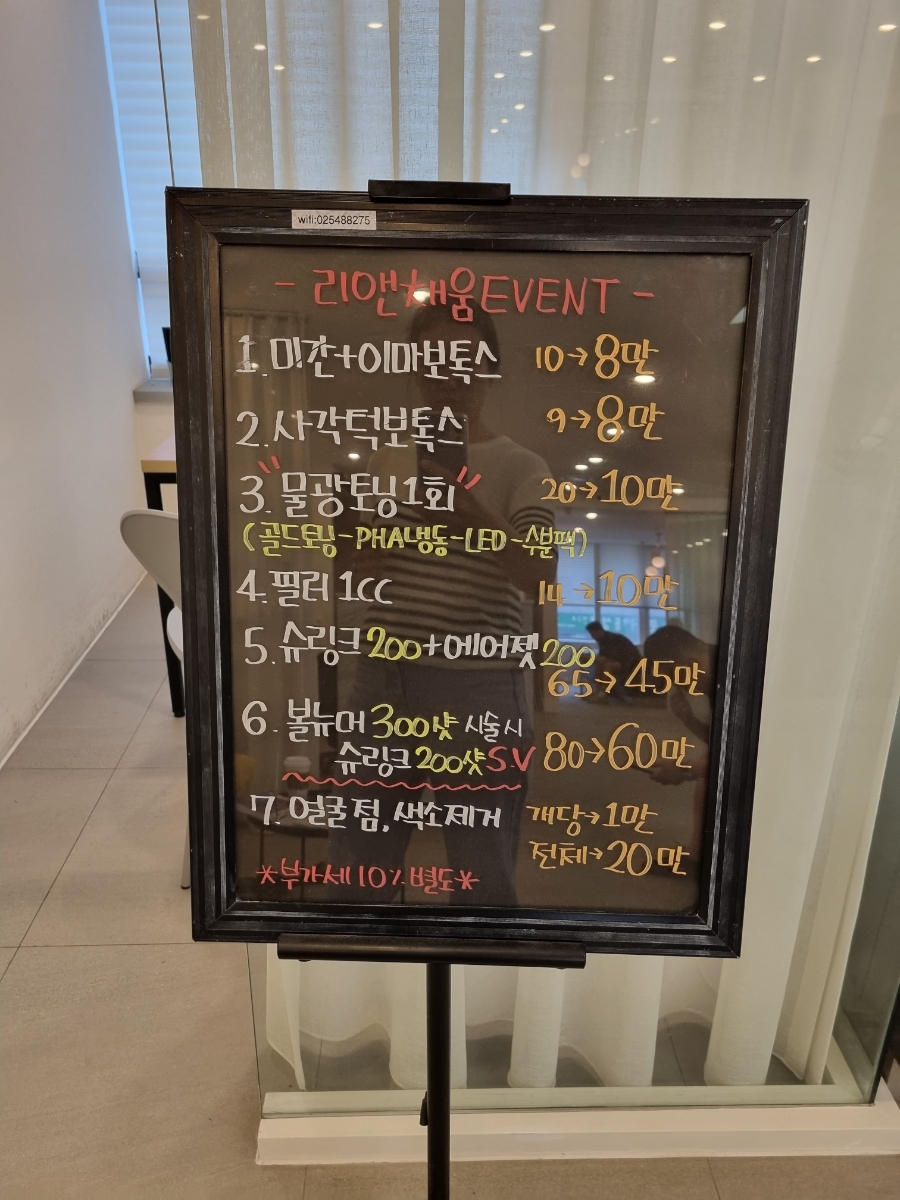 wifi:025488275
- 리앤채움EVENT -
1. 미간+이마보톡스 10→8만
2. 사각턱보톡스 9→8만
3. "물광토닝1회" 20→10만
(골드토닝-PHA냉동-LED-수분팩)
4. 필러 1CC 14→10만
5. 슈링크 200+에어젯 200
65→45만
6. 볼뉴머 300샷 시술시
슈링크 200샷 S.V 80→60만
7. 얼굴 점, 색소제거 개당→1만
전체→20만
*부가세 10% 별도*